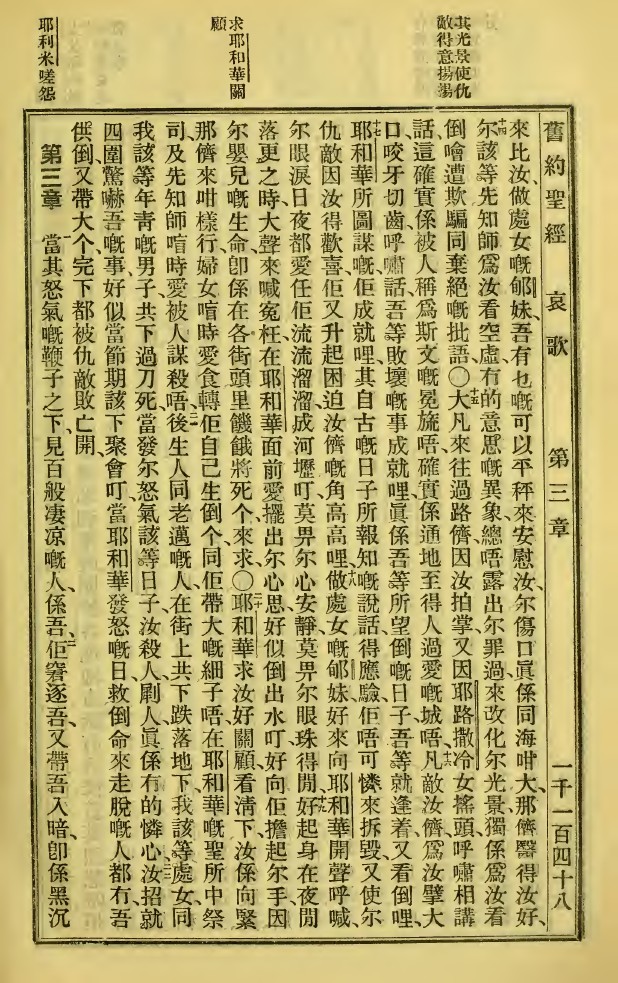 其光景使仇
敵得意揚揚
求耶和華關
顧
耶利米嗟怨
舊約聖經 哀歌 第三章 一千一百四十八
來比汝、做處女嘅郇妹、吾有乜嘅可以平秤來安慰汝、尔傷口眞係同海咁大、那儕醫得汝好、
十四尔該等先知師爲汝看空虛有的意思嘅異象、總唔露出尔罪過來改化尔光景、獨係爲汝看
倒噲遭欺騙同棄絕嘅批語〇十五大凡來往過路儕因汝拍掌、又因耶路撒冷女搖頭呼嘯相講
話、這確實係被人稱爲斯文嘅冕旒唔、確實係通地至得人過愛嘅城唔、十六凡敵汝儕爲汝擘大
口、咬牙切齒呼嘯話、吾等敗壞嘅事成就哩、眞係吾等所望倒嘅日子、吾等就逢着、又看倒哩、
十七耶和華所圖謀嘅、佢成就哩、其自古嘅日子所報知嘅說話得應驗、佢唔可憐來拆毀、又使尔
仇敵因汝得歡喜、佢又升起困迫汝儕嘅角高高哩、十八做處女嘅郇妹、好來向耶和華開聲呼喊、
尔眼淚日夜都愛任佢流流溜溜成河壢叮、莫畀尔心安靜、莫畀尔眼珠得閒、十九好起身在夜間
落更之時、大聲來喊寃枉、在耶和華面前愛擺出尔心思、好似倒出水叮、好向佢擔起尔手、因
尔嬰兒嘅生命、卽係在各街頭里饑餓將死个來求〇二十耶和華、求汝好關顧看淸下、汝係向緊
那儕來咁樣行、婦女唷時愛食轉佢自己生倒个、同佢帶大嘅細子唔、在耶和華嘅聖所中、祭
司及先知師唷時愛被人謀殺唔、二一後生人同老邁嘅人、在街上共下跌落地下、我該等處女同
我該等年靑嘅男子共下過刀死、當發尔怒氣該等日子、汝殺人刷人、眞係冇的憐心、二二汝招就
四圍驚嚇吾嘅事、好似當節期該下聚會叮、當耶和華發怒嘅日、救倒命來走脫嘅人都冇、吾
供倒、又帶大个、完下都被仇敵敗亡開、
第三章 一當其怒氣嘅鞭子之下、見百般凄凉嘅人、係吾、二佢窘逐吾、又帶吾入暗、卽係黑沉